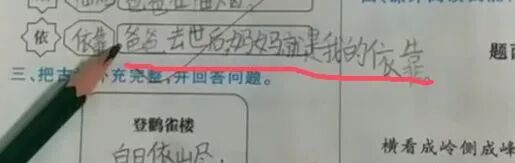 依 依靠 爸爸去世后,妈妈就是我的依靠。
三、把古诗补充完整,并回答问题。
登鹳雀楼
白日依山尽,
横看成岭侧成峰